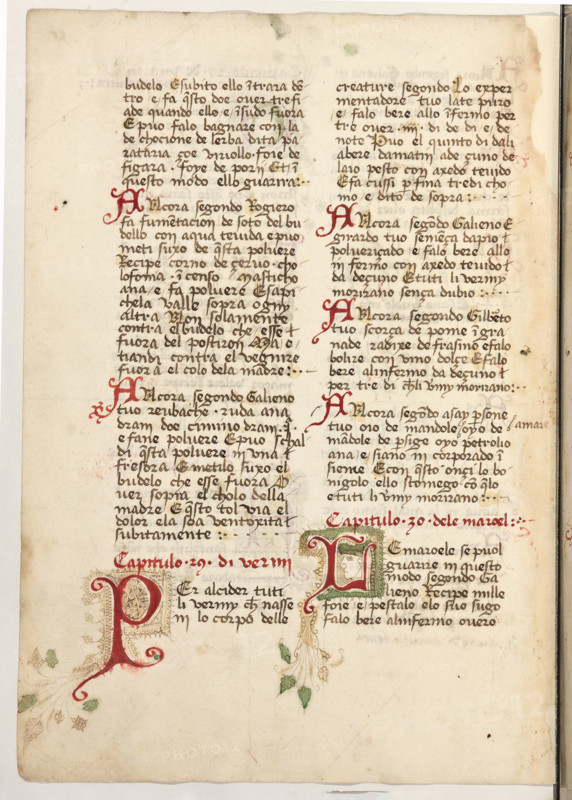 budelo Esubito ello ītrara dē
tro e fa q̄sto doe ouer trefi
ade quando ello e īsudo fuora
Epuo falo bagnare con la
de chocione de lerba dita pa
rataria çoe uriollo foie de
figara foye de porri Eti ī
questo modo ello guarira:
Alcora segondo Rogiero
fa fumentacion de soto del bu
dello con aqua teuida e puo
meti suxo de q̄sta poluere
Recipe corno de çeruo cho
lofoma īcenso masticho
ana e fa poluere Esapi
chela valle sopra ogni
altra Non solamente
contra el budelo che esse ī
fuora del postiron Ma e
tiandi contra el vegnire
fuora el colo dela madre:
Alcora segondo Galieno
tuo reubache ruda ana
dram doe cimino dram .j.
e fane poluere Epuo schal
di q̄sta poluere in vna ī
fresora E metilo suxo el
budelo che esse fuora O
uer sopra el cholo della
madre E q̄sto tol via el
dolor ela soa ventoxitat
subitamente :
Capitulo .29. di vermi
Per alcider tuti
li vermy ch̄ nasse
in lo corpo delle
creature segondo Lo exper
mentadore tuo late puro
e falo bere allo īfermo per
tre ouer .iiij. di de di e de
note Puo el quinto di dali
abere damatin ade çuno de
laio pesto con axedo teuido
Efa cussi p fina tredi cho
mo e dito de sopra :
Alcora segōdo Galieno E
girardo tuo semēca dapio ī
polueriçado e falo bere allo
in fermo con axedo teuido ī
da deçuno E tuti li vermy
morirano sença dubio :
Alcora segondo Gilbēto
tuo scorça de pome ī gra
nade radixe de frasino e falo
bolire con vino dolçe E falo
bere alinfermo da deçuno ī
per tre di ch̄ li v̄my morirano :
Alcora segōdo asay p̄sone
tuo oio de mandole / oyo de amare
mādole de p̄sige oyo petrolio
ana e siano in corporado ī
sieme E con q̄sto onçi lo bo
nigolo ello stomego cō q̄lo
e tuti li v̄my morirano :
Capitulo .30. dele maroel :
Le maroele se puol
guarire in questo
modo segondo Ga
lieno Recipe mille
foie e pestalo elo suo sugo
falo bere alinfermo ouero